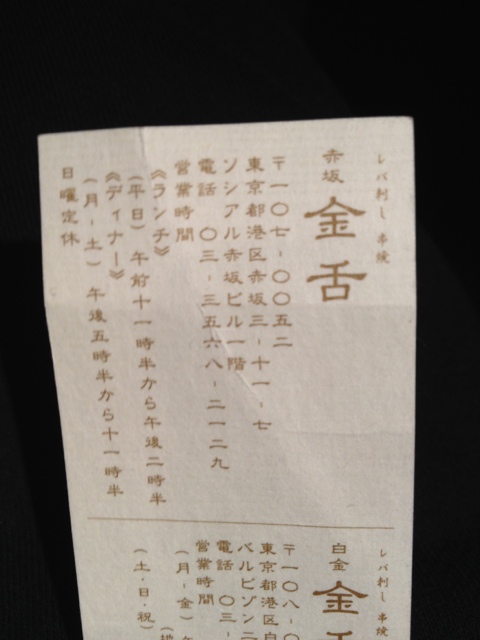 レバ刺し 串焼
赤坂
金舌
〒一〇七-〇〇五二
東京都港区赤坂三-十一-七
ソシアル赤坂ビル一階
電話 〇三-三五六八-二一二九
営業時間
《ランチ》
(平日) 午前十一時半から午後二時半
《ディナー》
(月-土) 午後五時半から十一時半
日曜定休
レバ刺し 串焼
白金
金舌
〒一〇八-〇
東京都港区白
ベルビゾン二
電話 〇三-
営業時間
(月-金)
(土・日・祝)